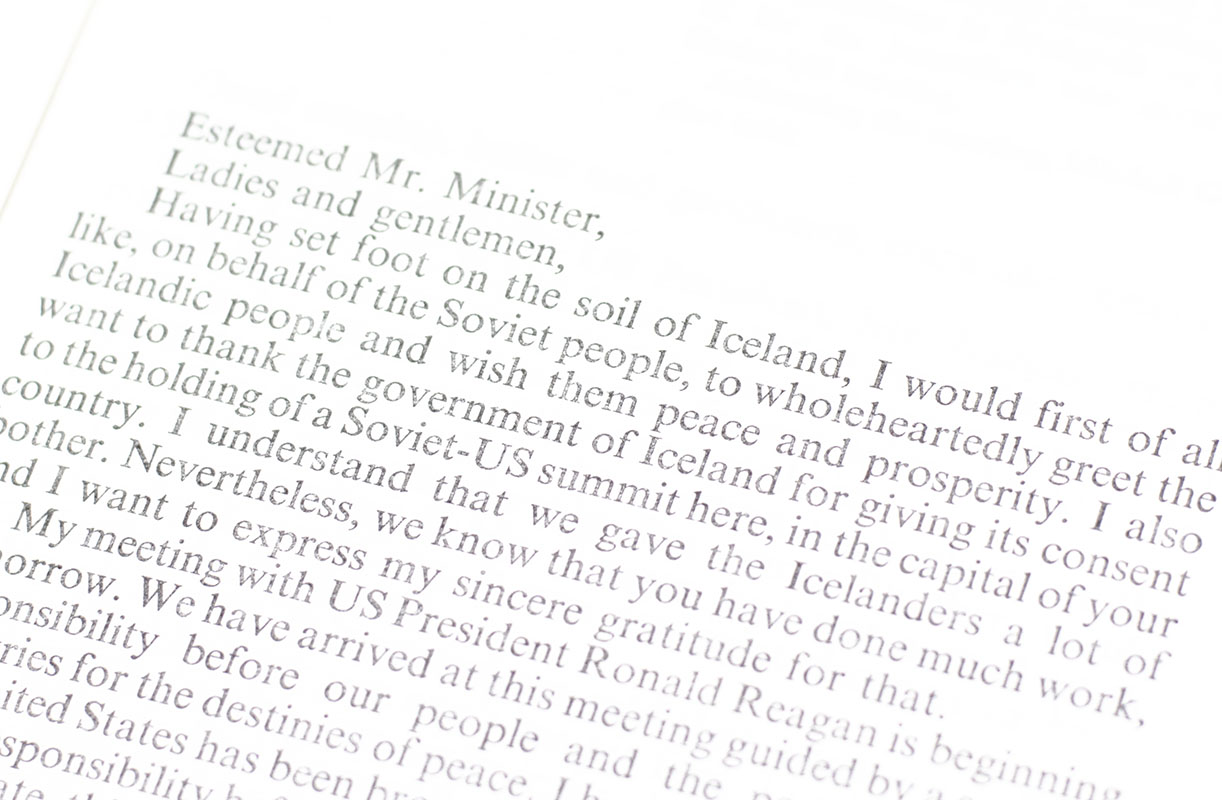 Esteemed Mr. Minister,
Ladies and gentlemen,
Having set foot on the soil of Iceland, I would first of all
like, on behalf of the Soviet people, to wholeheartedly greet the
Icelandic people and wish them peace and prosperity. I also
want to thank the government of Iceland for giving its consent
to the holding of a Soviet-US summit here, in the capital of your
country. I understand that we gave the Icelanders a lot of
bother. Nevertheless, we know that you have done much work,
nd I want to express my sincere gratitude for that.
My meeting with US President Ronald Reagan is beginning
orrow. We have arrived at this meeting guided by a
onsibility before our people and the
ries for the destinies of peace. I
ited States has been
sponsibility